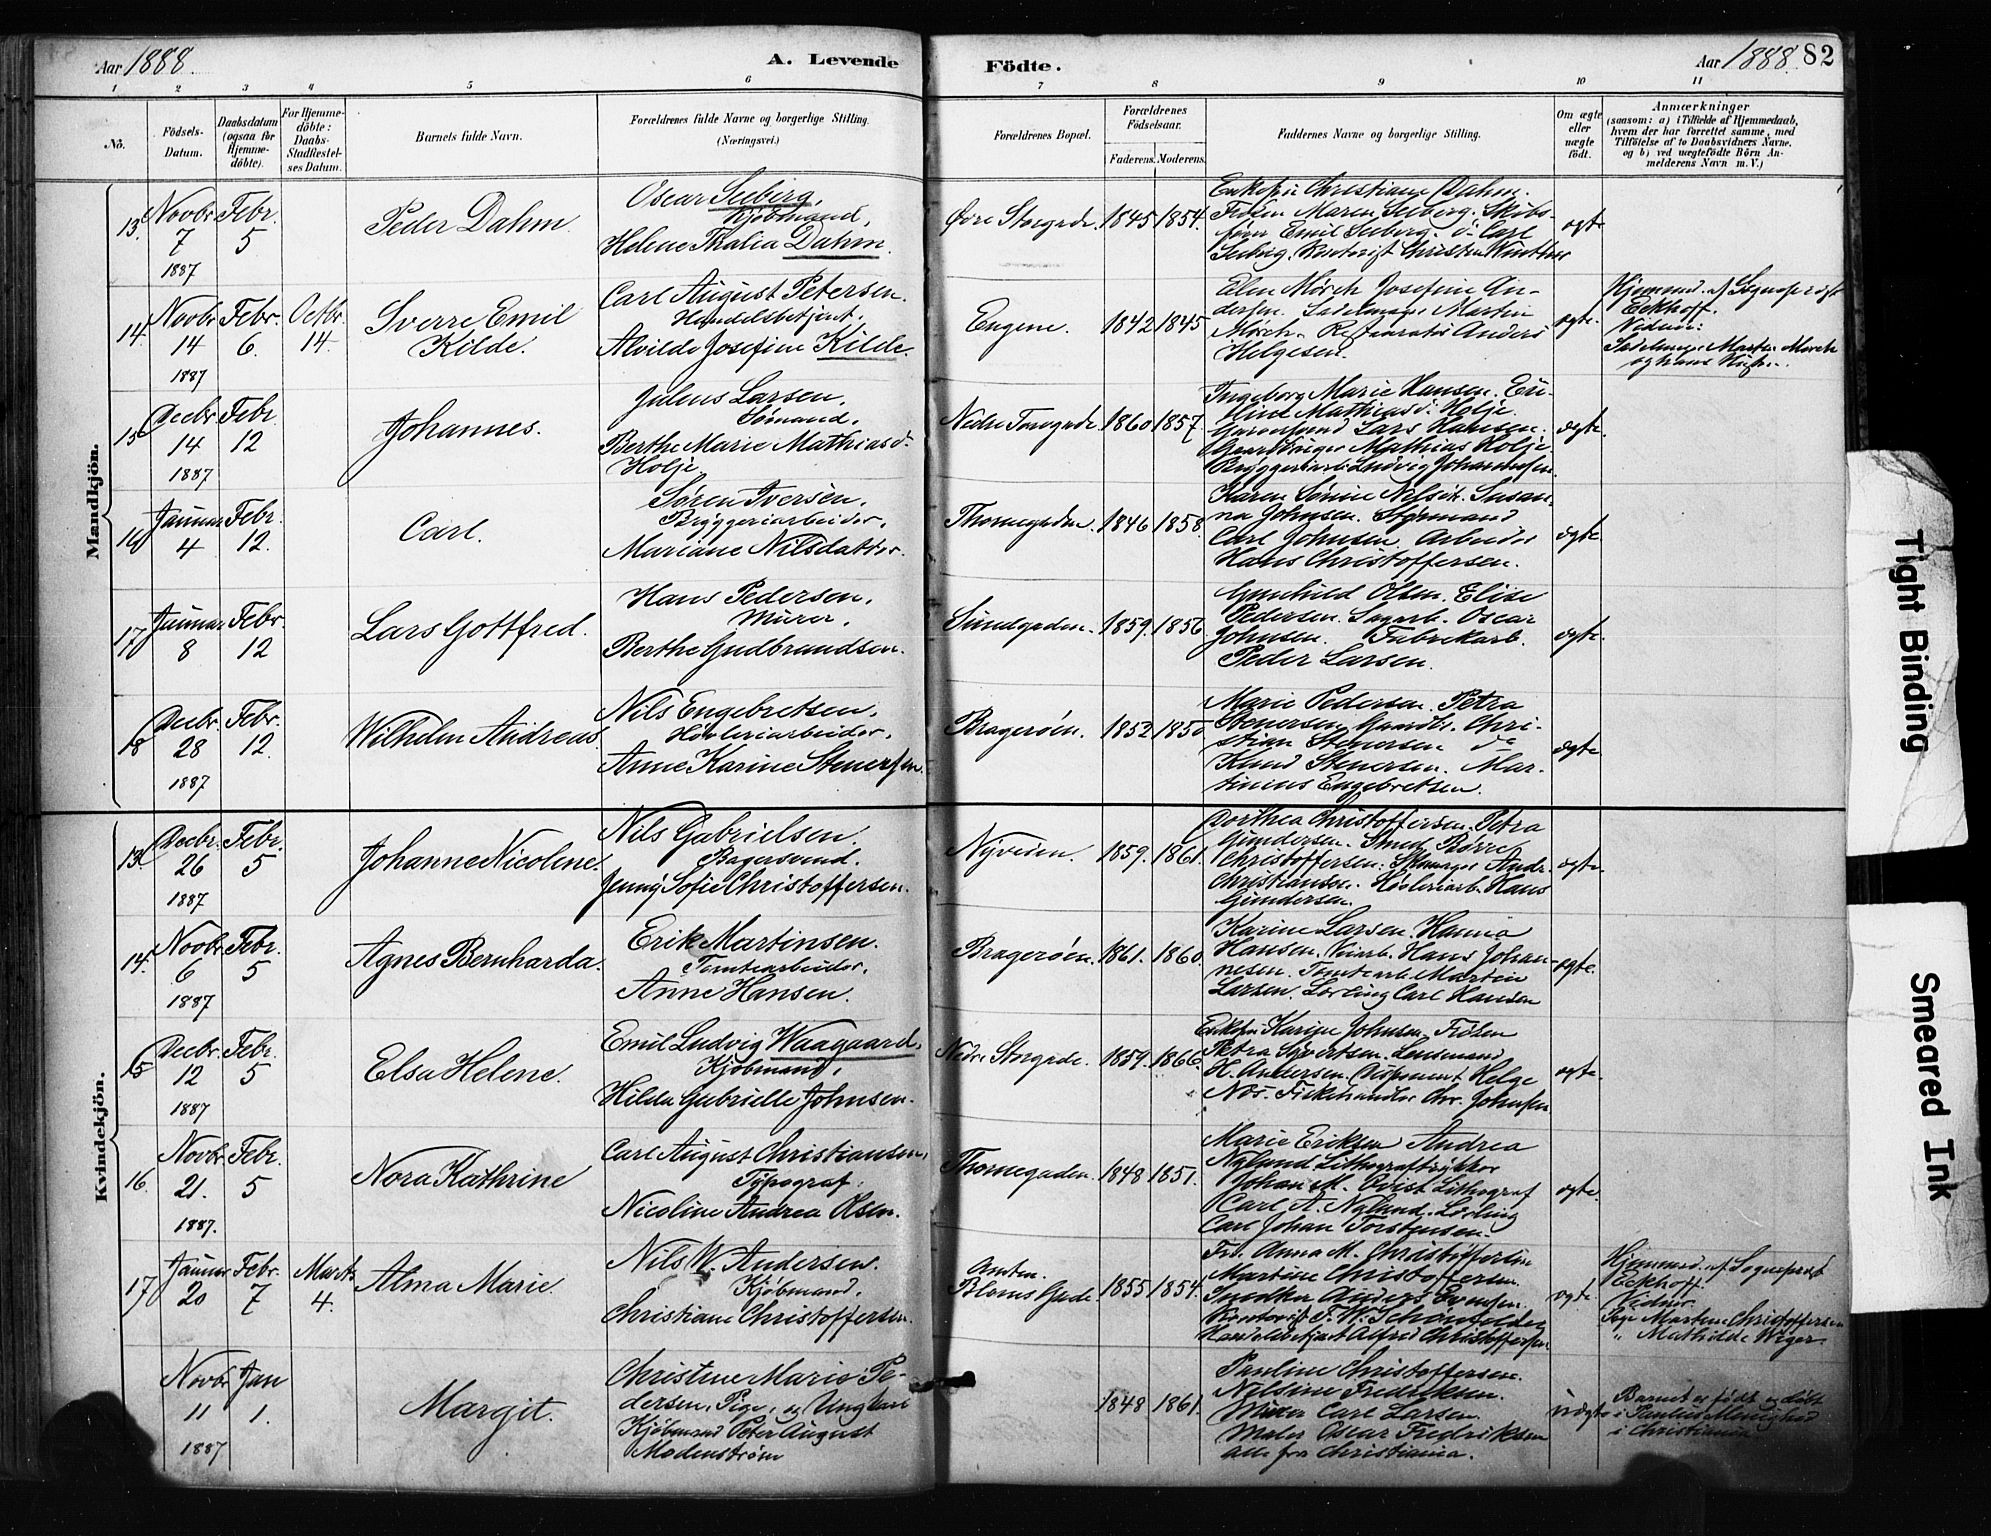 Aar 1888.
A. Levende
Födte.
Aar 1888. 82
1 2 3 4 5 6 7 8 9 10 11
No.
Födsels-
Datum.
Daabsdatum
(ogsaa for
Hjemme-
döbte).
For Hjemme-
döbte:
Daabs-
Stadfæstel-
ses Datum.
Barnets fulde Navn.
Forældrenes fulde Navne og borgerlige Stilling.
(Næringsvei.)
Forældrenes Bopæl.
Forældrenes
Födselsaar.
Faderens. Moderens.
Faddernes Navne og borgerlige Stilling.
Om ægte
eller
uægte
født.
Anmærkninger
(saasom: a) i Tilfælde af Hjemmedaab,
hvem der har forrettet samme, med
Tilföielse af to Daabsvidners Navne,
og b) ved uægtefödte Börn An-
melderens Navn m. V.)
Mandkjön.
13. Novbr 7 1887
Febr. 5
Peder Dahm
Oscar Seeberg,
Kjøbmand,
Helene Thalia Dahm.
Øvre Storgade. 1845 1854.
Enkefru Christiane Dahm.
Frøken Maren Seeberg. Skibs-
fører Emil Seeberg. Carl
Seeberg. Kontorist Christian Winther
ægte
14. Novbr 14 1887
Febr. 6.
Octbr. 14.
Sverre Emil
Kilde.
Carl August Petersen.
Handelsbetjent.
Alvilde Josefine Kilde.
Engene. 1842 1845
Elen Mörch Josefine An-
dersen. Sadelmager Martin
Mörch. Restauratör Anders
Helgesen.
ægte.
Hjemmed. af Sogneprest
Eckhoff.
Vidner:
Sadelmager Martin Mörch
og hans Hustru.
15 Decbr 14 1887
Febr 12
Johannes.
Julius Larsen,
Sömand,
Berthe Marie Mathiasd.
Holje
Nedre Torvgade. 1860 1857.
Ingeborg Marie Hansen.
Mathiasd. Holje.
Garversvend Lars Hansen.
Gaardbruger Mathias Holje
Bryggeriarb. Ludvig Johannesen.
ægte.
16 Januar 4
Febr. 12.
Carl.
Sören Iversen,
Bryggeriarbeider,
Mariane Nilsdatter.
Thornegaden. 1846 1858.
Karen Sörine Nilsen. Susan-
na Johnsen. Styrmand
Carl Johnsen. Arbeider
Hans Christoffersen.
ægte.
17 Januar 8
Febr. 12
Lars Gottfred.
Hans Pedersen,
Murer,
Berthe Gudbrandsen.
Sundgaden. 1859. 1856
Gunhild Olsen. Elise
Pedersen. Sagarb. Oscar
Johnsen. Fabrikarb.
Peder Larsen.
ægte.
18 Decbr. 28 1887
Febr. 12.
Wilhelm Andreas.
Nils Engebretsen,
Høvleriarbeider,
Anne Karine Stenersen.
Bragerøen. 1852 1850
Marie Pedersen. Petra
Stenersen. Gaardbr. Chri-
stian Stenersen do
Knud Stenersen. Mar-
tinius Engebretsen.
ægte
Kvindekjön.
13. Decbr. 26 1887
Febr. 5
Johanne Nicoline.
Nils Gabrielsen.
Bagersvend.
Jenny Sofie Christoffersen.
Nyveien. 1859. 1861.
Dorthea Christoffersen. Petra
Gundersen. Smed Börre
Christoffersen. Andr.
Christiansen. Høvleriarb. Hans
Gundersen.
ægte.
14. Novbr. 6 1887
Febr. 5
Agnes Bernharda.
Erik Martinsen.
Tomtearbeider,
Anne Hansen.
Bragerøen. 1861. 1860.
Karine Larsen. Hanna
Hansen. Hans Johan-
nesen. Tomtearb. Martin
Larsen. Lærling Carl Hansen
ægte.
15 Decbr. 12 1887
Febr. 5
Elsa Helene.
Emil Ludvig Waagaard,
Kjøbmand,
Hilda Gabrielle Johnsen.
Nedre Storgade. 1859. 1866.
Enkefru Karine Johnsen. Frøken
Petra Syvertsen. Lensmand
H. Andersen. Disponent Helge
Nös. Fiskehandler Chr. Johnsen
ægte.
16. Novbr 21. 1887.
Febr. 5
Nora Kathrine
Carl August Christiansen,
Typograf,
Nicoline Andrea Olsen.
Thornegaden. 1848 1851.
Marie Eriksen Andrea
Nylund. Lithograftrykker
Johan M. Qvist. Lithograf
Carl A. Nylund. Lærling
Carl Johan Torstensen.
ægte.
17 Januar 20
Febr. 7
Marts 4.
Alma Marie.
Nils W. Andersen.
Kjøbmand,
Christiane Christoffersen.
Amtm.
Bloms Gade. 1855 1854.
Fr. Anna M. Christoffersen
Martine Christoffersen.
Snedker Anders Evensen.
Kontorist F. W. Schönfelder
Handelsbetjent Alfred Christoffersen
ægte.
Hjemmed. af Sogneprest
Eckhoff.
Vidner.
Pige Martine Christoffersen
" Mathilde Wiger.
Novbr 11 1887
Jan 1.
Margit.
Christine Marie Pe-
dersen, Pige, og Ungkarl
Kjøbmand Peter August
Modenström
1848 1861.
Pauline Christoffersen.
Nilsine Fredriksen.
Murer Carl Larsen.
Maler Oscar Fredriksen
alle fra Christiania.
uægte
Barnet er født og døbt
i Paulus Menighed
i Christiania
Tight Binding
Smeared Ink